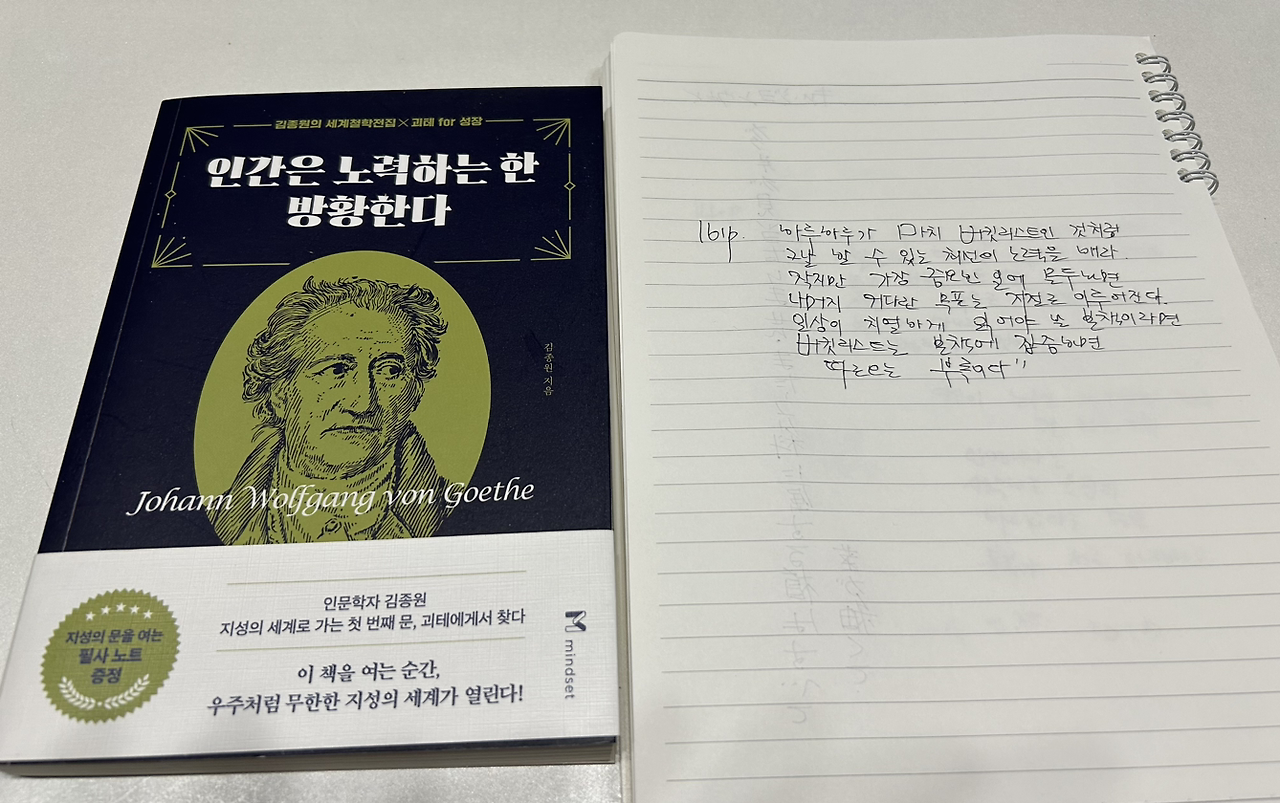 김종원의 세계철학전집 × 괴테 for 성장
인간은 노력하는 한
방황한다
김종원 지음
Johann Wolfgang von Goethe
인문학자 김종원
지성의 세계로 가는 첫 번째 문, 괴테에게서 찾다
이 책을 여는 순간,
우주처럼 무한한 지성의 세계가 열린다!
지성의 문을 여는
필사 노트
증정
mindset
161p. 하루하루가 마치 버킷리스트인 것처럼
그날 할 수 있는 최선의 노력을 해라.
작지만 가장 중요한 일에 몰두하면
나머지 커다란 목표는 저절로 이루어진다.
일상이 치열하게 읽어야 할 본책이라면
버킷리스트는 본책에 집중하면
따르는 부록이다"